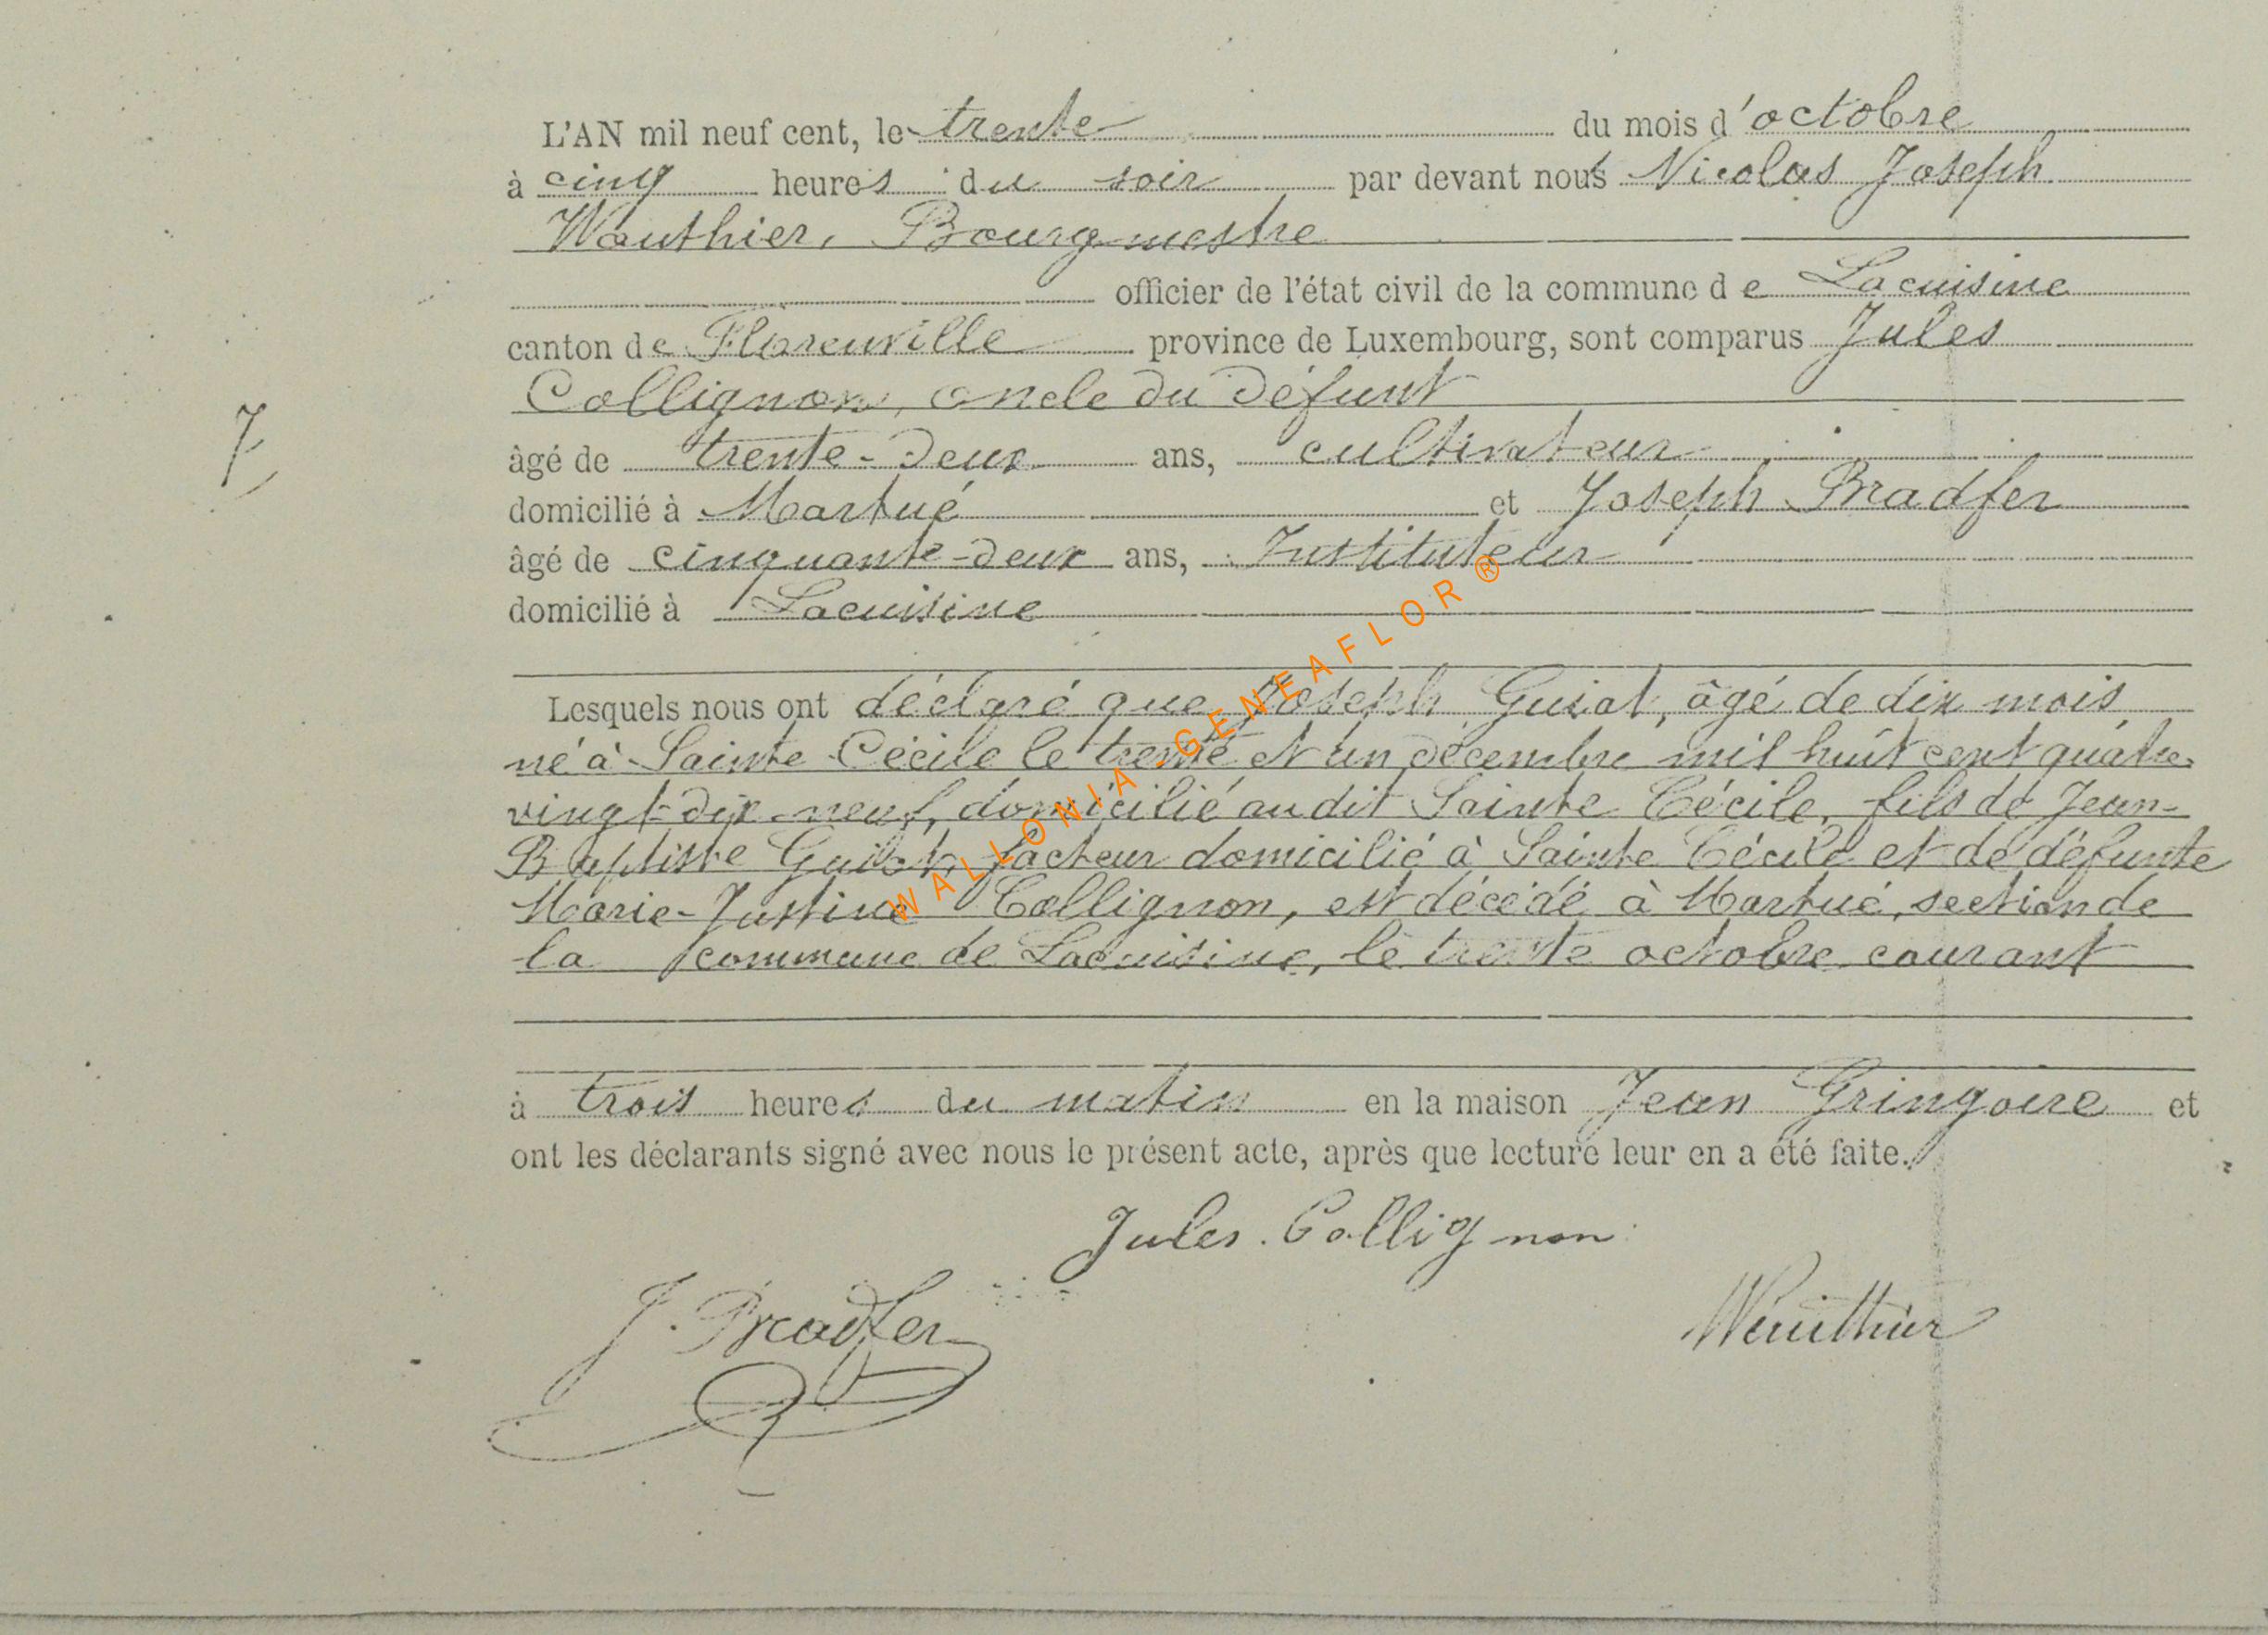 L'AN mil neuf cent, le trente du mois d'octobre
à cinq heures du soir par devant nous Nicolas Joseph
Wauthier, Bourgmestre
officier de l'état civil de la commune de Lacuisine
canton de Florenville province de Luxembourg, sont comparus Jules
Collignon, oncle du défunt
âgé de trente-deux ans, cultivateur
domicilié à Martué et Joseph Bradfer
âgé de cinquante-deux ans, Instituteur
domicilié à Lacuisine
Lesquels nous ont déclaré que Joseph Guiot, âgé de dix mois
né à Sainte Cécile le trente et un décembre mil huit cent quatre
vingt-dix-neuf, domicilié au dit Sainte Cécile, fils de Jean-
Baptiste Guiot, facteur domicilié à Sainte Cécile et de défunte
Marie-Justine Collignon, est décédé à Martué, section de
la commune de Lacuisine, le trente octobre courant
à trois heures du matin en la maison Jean Gringoire et
ont les déclarants signé avec nous le présent acte, après que lecture leur en a été faite.
Jules Collignon
J. Bradfer
Wauthier
WALLONIA GENEAFLOR ®